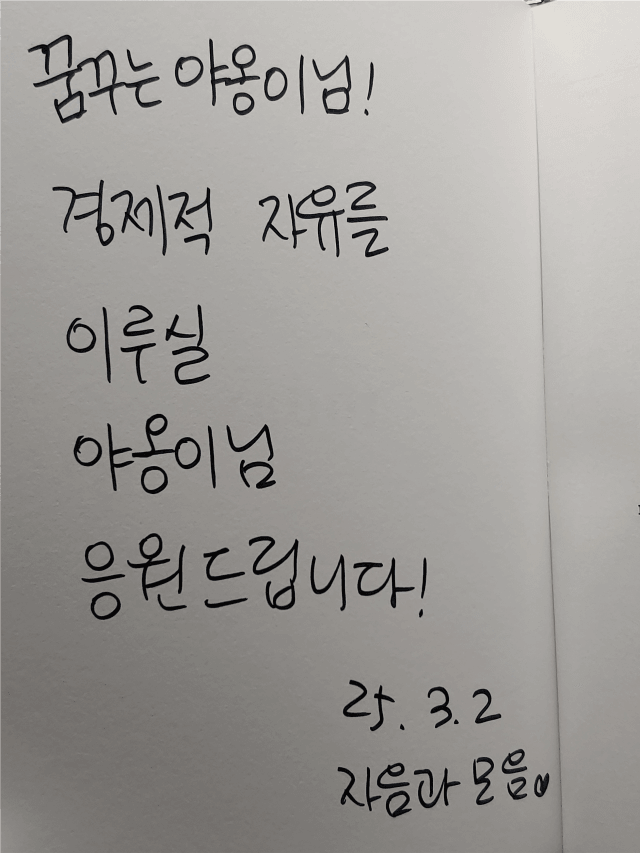 꿈꾸는 야옹이님!
경제적 자유를
이루실
야옹이님
응원드립니다!
25. 3. 2
자음과 모음.